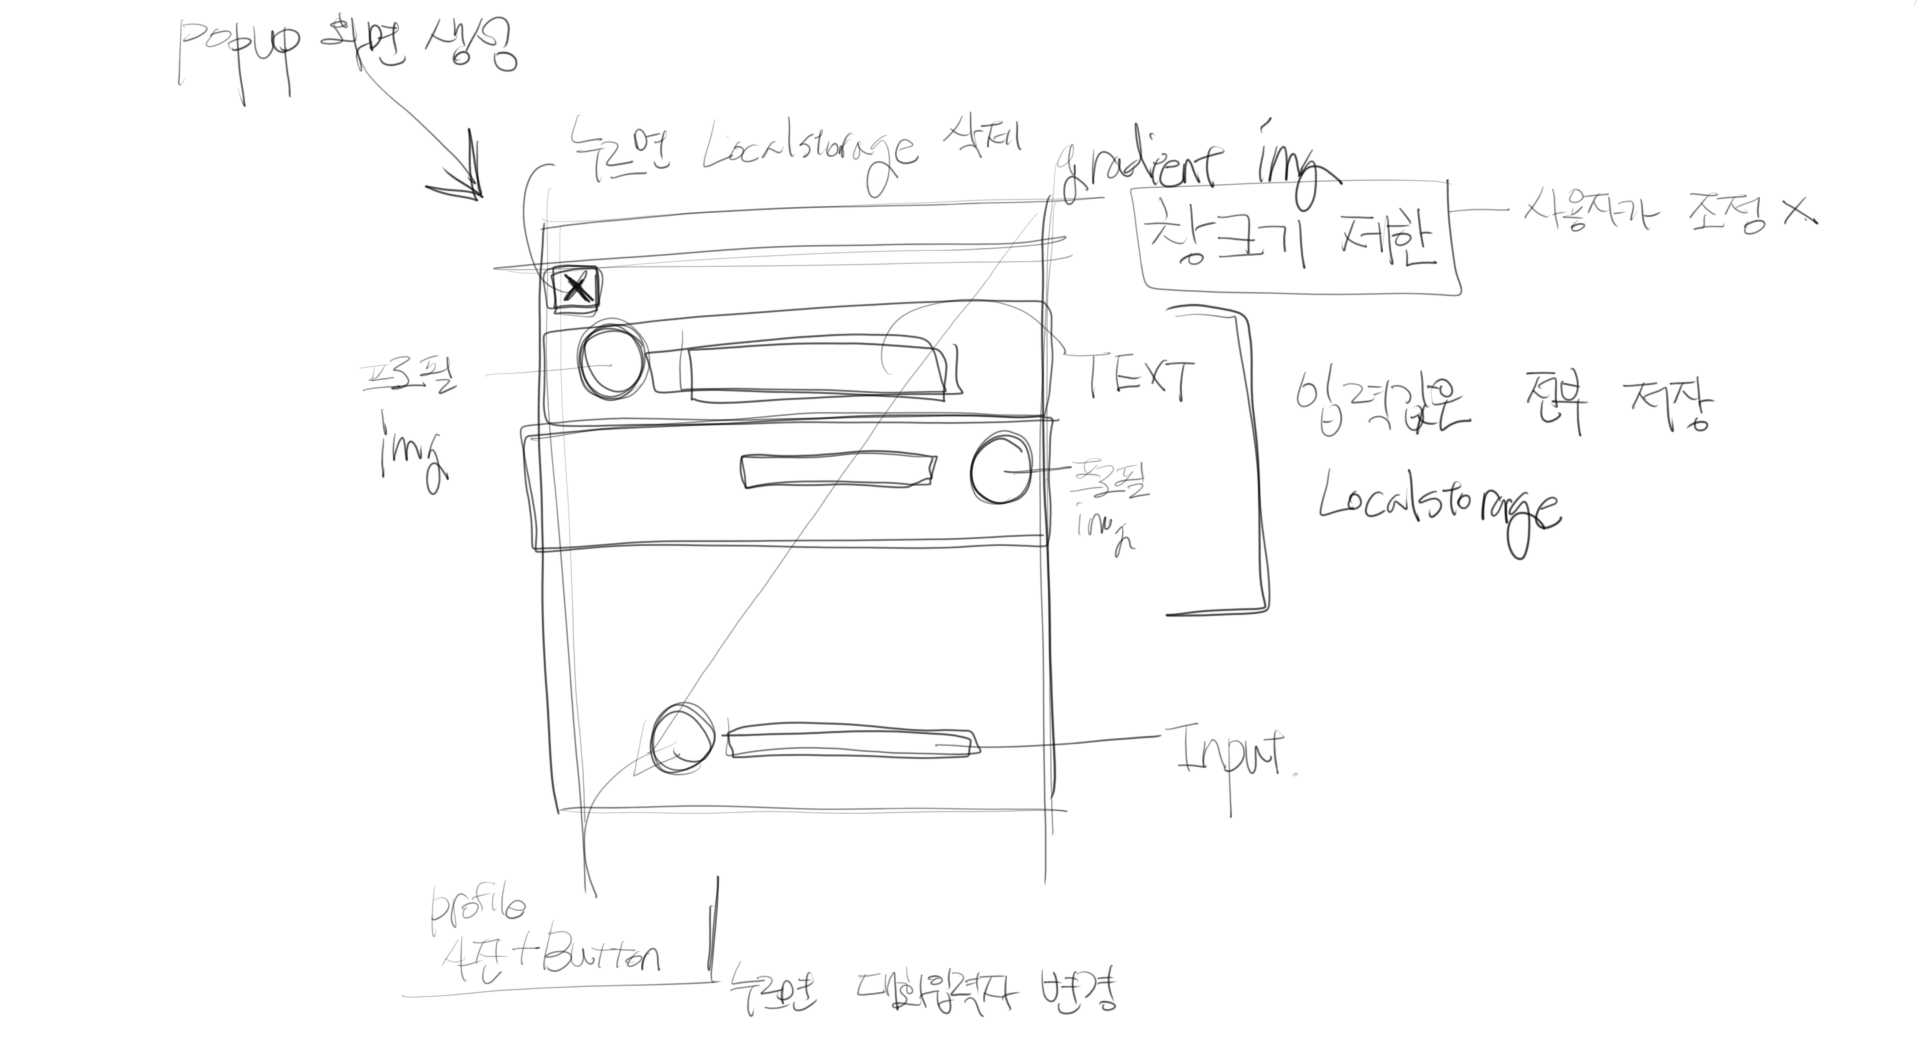 popup 화면 생성
누르면 Localstorage 삭제
gradient img
창크기 제한
사용자가 조정 X
X
프로필
img
TEXT
프로필
img
입력값은 전부 저장
Localstorage
Input.
profile
사진+Button
누르면 대화입력자 변경